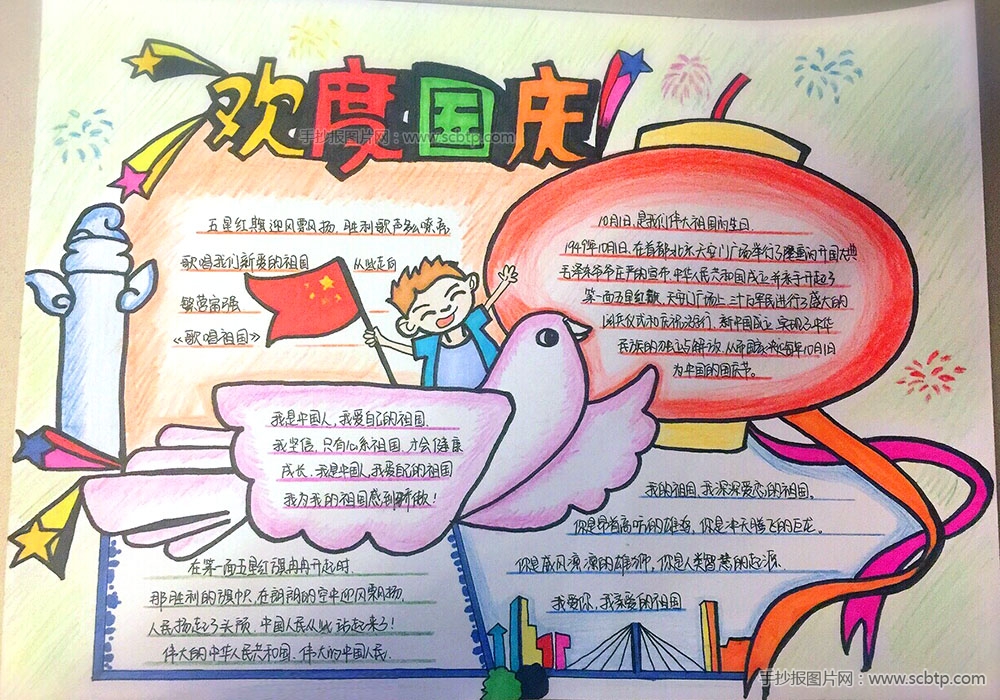 欢度国庆!
手抄报图片网：www.scbtp.com
五星红旗迎风飘扬,胜利歌声多么嘹亮,
歌唱我们亲爱的祖国 从此走向
繁荣富强
《歌唱祖国》
10月1日,是我们伟大祖国的生日
1949年10月1日,在首都北京天安门广场举行了隆重的开国大典
毛泽东爷爷庄严的宣布中华人民共和国成立并亲手升起了
第一面五星红旗,天安门广场上三十万军民进行了盛大的
阅兵仪式和庆祝游行,新中国成立,实现了中华
民族的独立与解放,从 每年10月1日
为中国的国庆节。
我是中国人,我爱自己的祖国,
我坚信,只有心系祖国,才会健康
成长,我是中国人,我爱自己的祖国
我为我的祖国感到骄傲!
在第一面五星红旗冉冉升起时,
那胜利的旗帜,在朗朗的空中迎风飘扬,
人民扬起了头颅,中国人民从此站起来了!
伟大的中华人民共和国、伟大的中国人民,
我的祖国,我深深爱恋的祖国。
你是昂首高吭的雄鸡,你是冲天腾飞的巨龙。
你是威风凛凛的雄狮,你是人类智慧的起源.
我爱你,我亲爱的祖国
手抄报图片网：www.scbtp.com